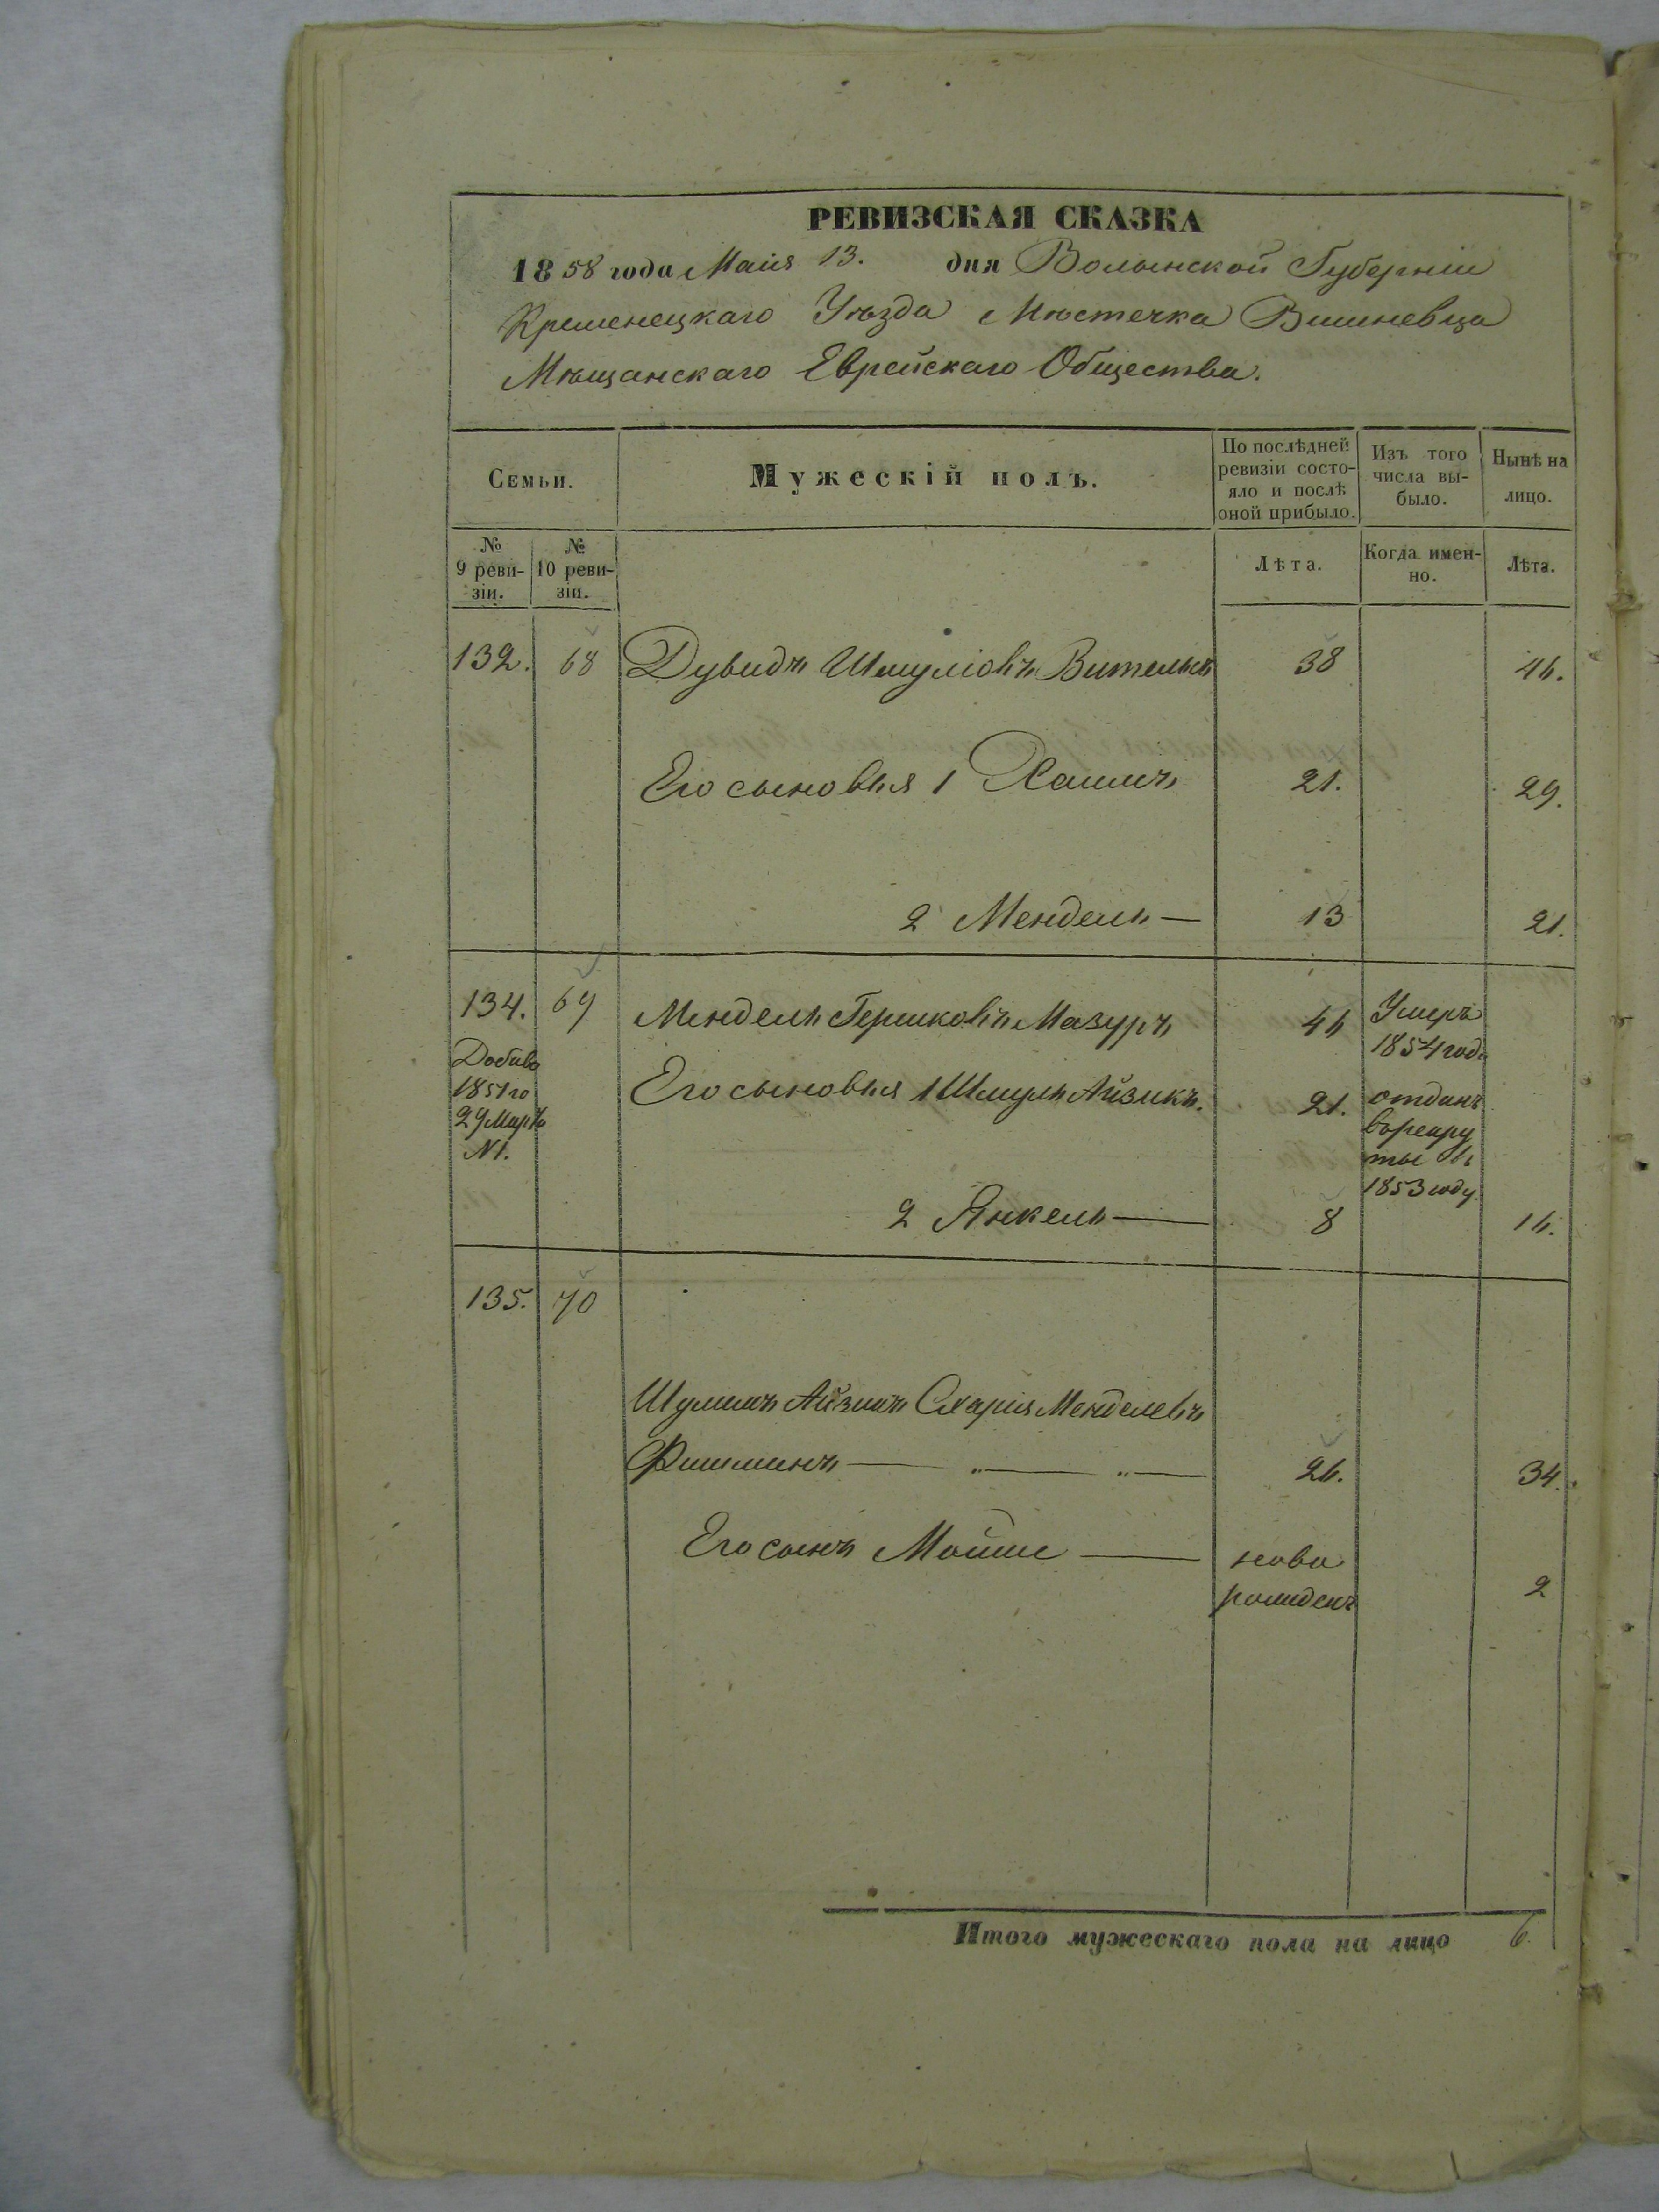 РЕВИЗСКАЯ СКАЗКА
1858 года Маія 13. дня Волынской Губерніи
Кременецкаго Уѣзда Мѣстечка Вишневца
Мѣщанскаго Еврейскаго Общества.
Семьи.
Мужескій полъ.
По послѣдней ревизіи состояло и послѣ оной прибыло.
Изъ того числа выбыло.
Нынѣ на лицо.
№ 9 ревизіи.
№ 10 ревизіи.
Лѣта.
Когда именно.
Лѣта.
132. 68 Дувидъ Шмуліовъ 38 46.
Его сыновья 1 Хаимъ 21. 29.
2 Мендель — 13 21.
134. 69 Мендель Гершковъ Мазуръ 46 Умеръ 1854 года
1851го
29 Марта
№1.
Его сыновья 1 Шмуль Айзикъ. 21. отданъ
въ рекру
ты въ
1853 году
2 Янкель — 8 16.
135. 70
Шулимъ Айзикъ Менделевъ
Фишманъ — „ — „ — 26. 34.
Его сынъ Мойше — ново
рожденъ 2
Итого мужескаго пола на лицо 6.